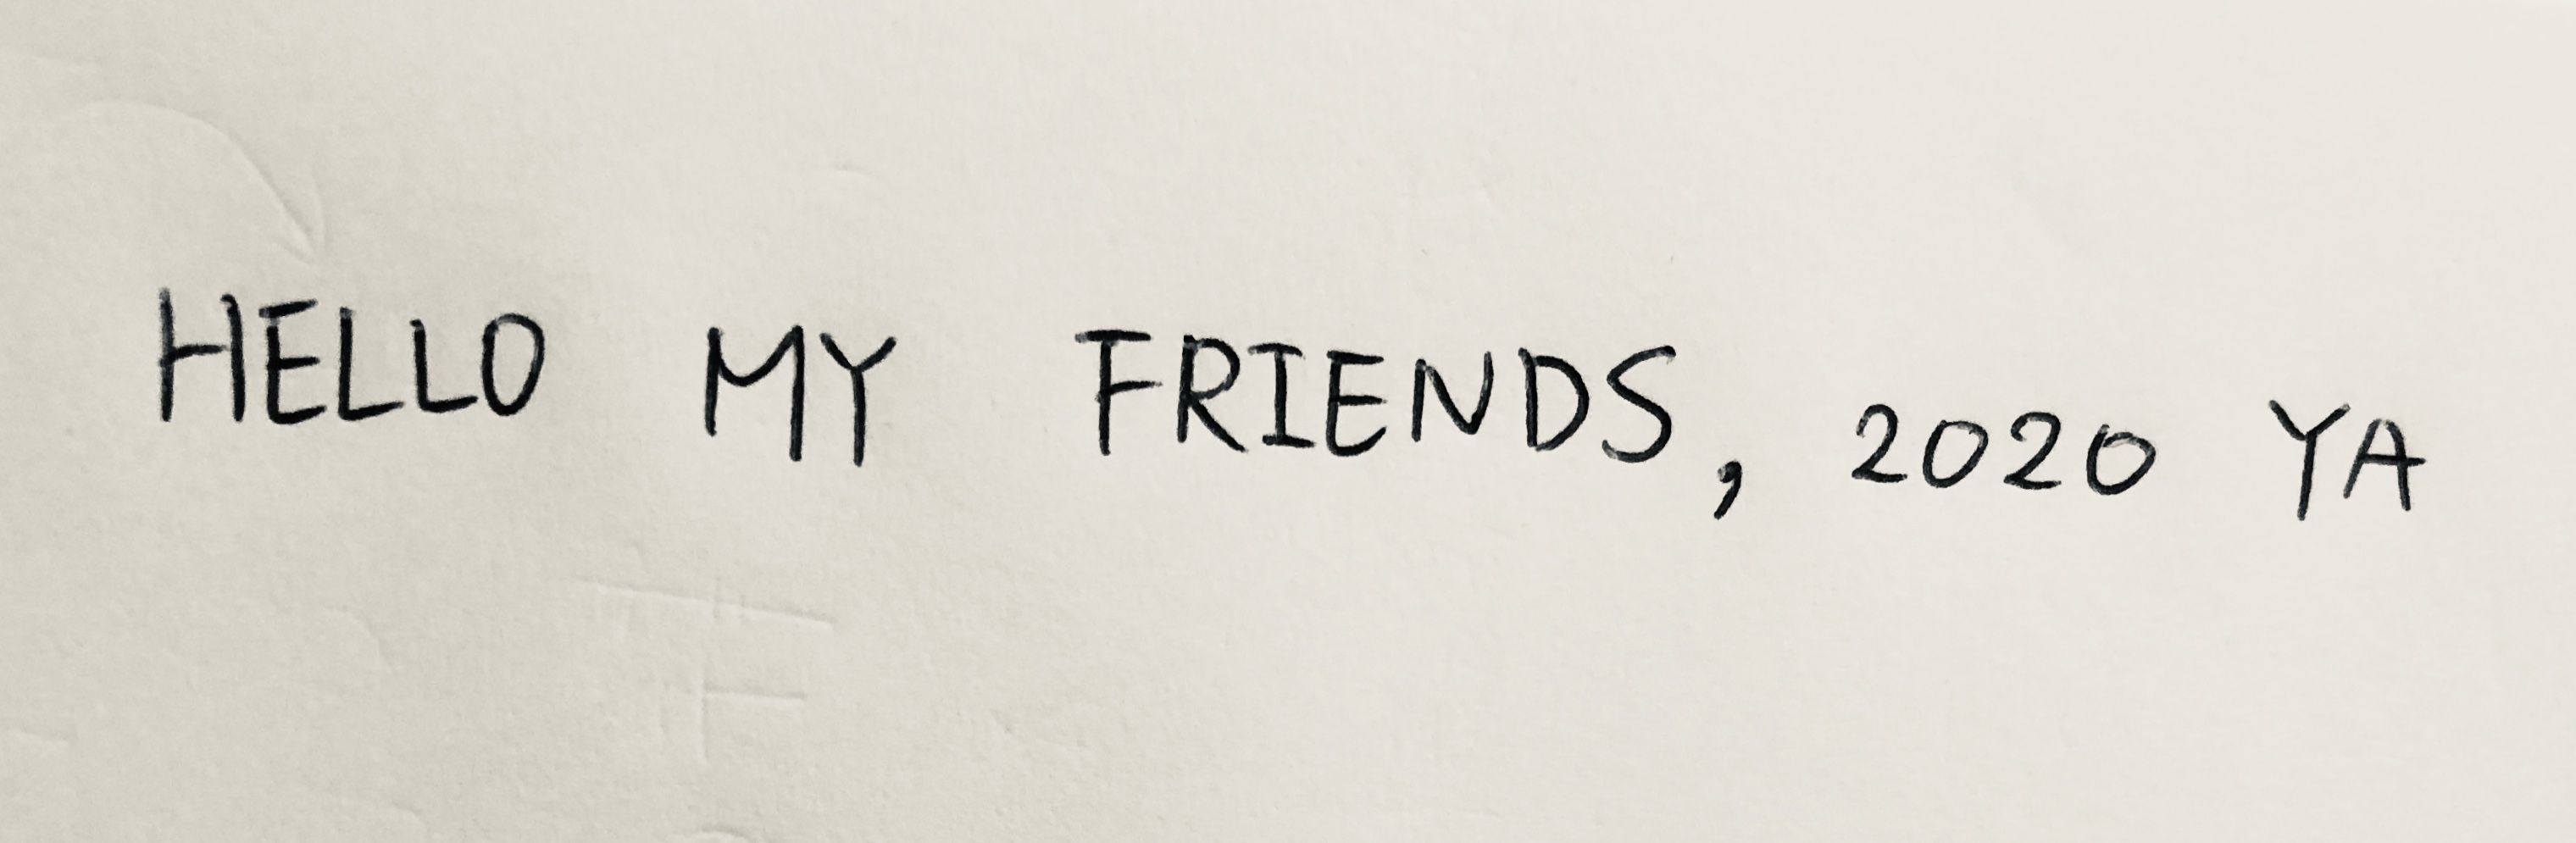 HELLO MY FRIENDS, 2020 YA